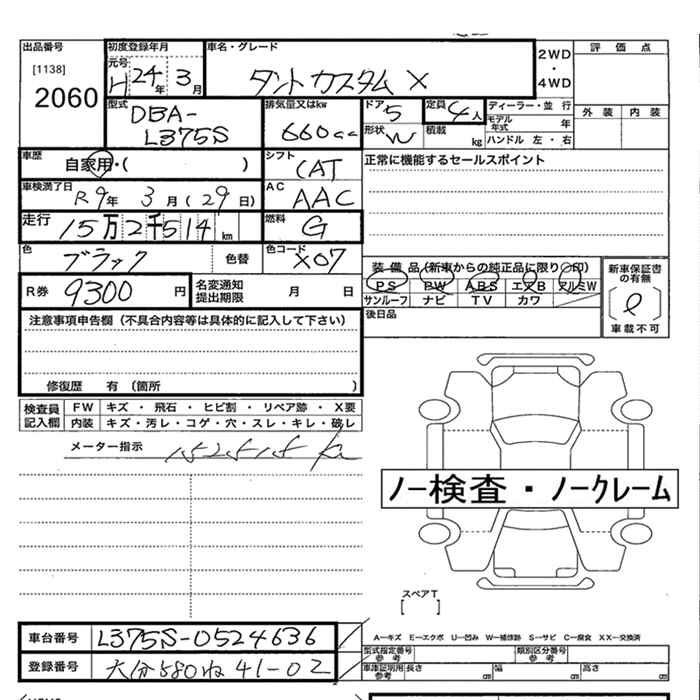 出品番号 初度登録年月 車名・グレード 2WD ・ 4WD 評価点
[1138] 元号 H 24年 3月 ダントカスタム X
2060 外装 内装
型式 DBA-L375S 排気量又はkw 660cc ドア 5 定員 4人 ディーラー・並行
形状 W 積載 kg モデル年式 年
ハンドル 左・右
車歴 自家用・( ) シフト CAT 正常に機能するセールスポイント
車検満了日 R9年 3月(29日) AC AAC
走行 15万2千514km 燃料 G
色 ブラック 色替 色コード X07
装備品(新車からの純正品に限り○印) 新車保証書の有無
PS PW ABS エアB アルミW
サンルーフ ナビ TV カワ
車載不可
R券 9300円 名変通知提出期限 月 日 後日品
注意事項申告欄(不具合内容等は具体的に記入して下さい)
修復歴 有(箇所 )
検査員記入欄 FW キズ ・ 飛石 ・ ヒビ割 ・ リペア跡 ・ X要
内装 キズ・汚レ・コゲ・穴・スレ・キレ・破レ
メーター指示
ノー検査・ノークレーム
スペアT
[ ]
車台番号 L375S-0524636
A-キズ E-エクボ U-凹み W-補修跡 S-サビ C-腐食 XX-交換済
型式指定番号 参考 類別区分番号 参考
登録番号 大分580ね 41-02
車庫証明用 参考 長さ cm 幅 cm 高さ cm